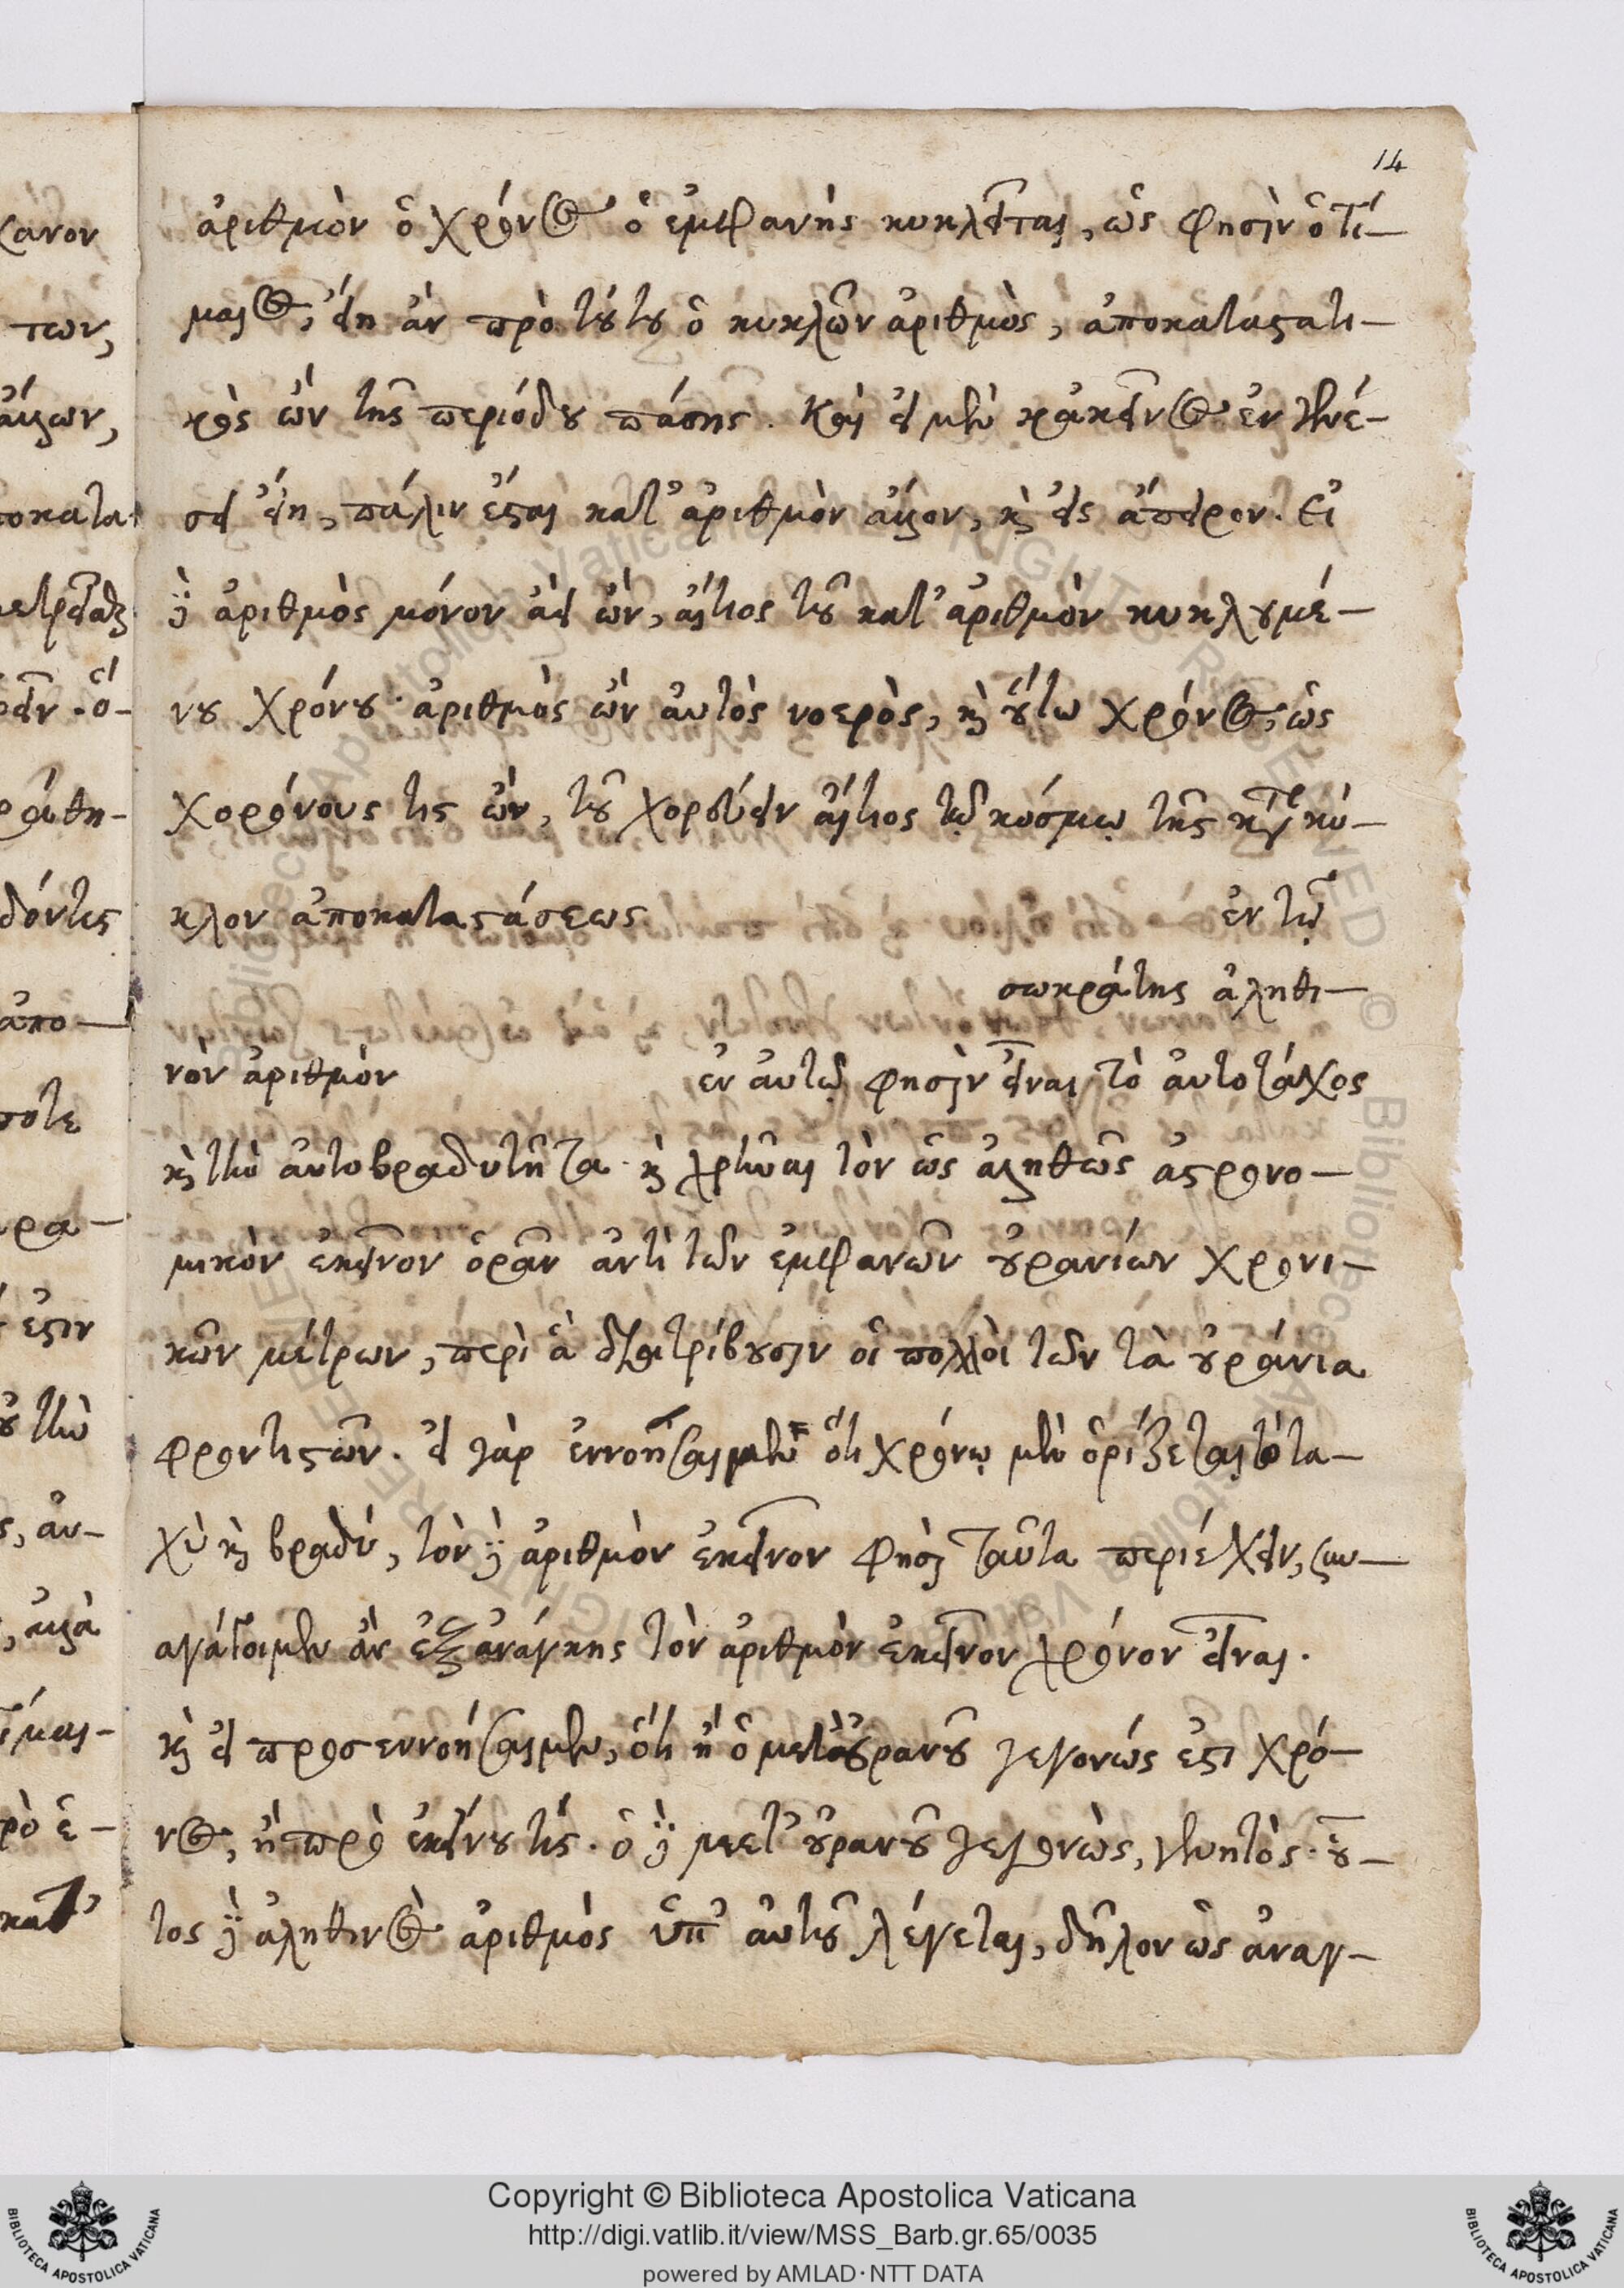 14
κανον
των,
ἄλλων,
ποκατα
δόντες
ἀπο—
ποτε
ἐστιν
ἀριθμὸν ὁ χρόνος ὁ ἐμφανὴς κυκλεῖται, ὥς φησὶν ὁ τί—
μαιος, εἴη ἂν πρὸ τούτου ὁ κυκλῶν ἀριθμὸς, ἀποκαταστατι—
κὸς ὢν τῆς περιόδου πάσης. Καὶ εἰ μὲν κἀκεῖνος ἐν γενέ—
σει εἴη, πάλιν ἔσται κατ' ἀριθμὸν ἄλλον, καὶ εἰς ἄπειρον. Εἰ
δὲ ἀριθμὸς μόνον ἀεὶ ὢν, αἴτιος τοῦ κατ' ἀριθμὸν κυκλουμέ—
νου χρόνου· ἀριθμὸς ὢν αὐτὸς νοερὸς, καὶ οὕτω χρόνος, ὡς
χορόνους τις ὢν, τοῦ χορεύειν αἴτιος τῷ κόσμῳ τῆς κατὰ κύ—
κλον ἀποκαταστάσεως ἐν τῷ
σωκράτης ἀληθι—
νὸν ἀριθμὸν ἐν αὐτῷ φησὶν εἶναι τὸ αὐτοτάχος
καὶ τὴν αὐτοβραδυτῆτα· καὶ χρῆναι τὸν ὡς ἀληθῶς ἀστρονο—
μικὸν ἐκεῖνον ὁρᾶν ἀντὶ τῶν ἐμφανῶν οὐρανίων χρονι—
κῶν μέτρων, περὶ ἃ διατρίβουσιν οἱ πολλοὶ τῶν τὰ οὐράνια
φροντιστῶν. εἰ γὰρ ἐννοήσαιμεν ὅτι χρόνῳ μὲν ὁρίζεται τὸ τα—
χὺ καὶ βραδύ, τὸν δὲ ἀριθμὸν ἐκεῖνον φησὶ ταῦτα περιέχειν, συν—
αγάγοιμεν ἂν ἐξ ἀνάγκης τὸν ἀριθμὸν ἐκεῖνον χρόνον εἶναι.
καὶ εἰ προσεννοήσαιμεν, ὅτι ἢ ὁ μετὰ οὐρανοῦ γεγονώς ἐστι χρό—
νος, ἢ πρὸ ἐκείνου τίς. ὁ δὲ μετ' οὐρανοῦ γεγονὼς, γενητὸς· οὗ—
τος δὲ ἀληθινὸς ἀριθμὸς ὑπ' αὐτοῦ λέγεται, δῆλον ὡς ἀναγ—
Copyright © Biblioteca Apostolica Vaticana
http://digi.vatlib.it/view/MSS_Barb.gr.65/0035
powered by AMLAD·NTT DATA
BIBLIOTECA APOSTOLICA VATICANA
BIBLIOTECA APOSTOLICA VATICANA